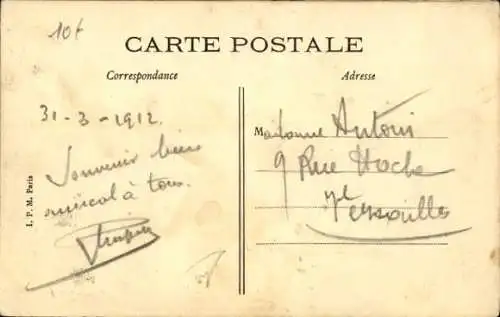 10f
CARTE POSTALE
Correspondance
Adresse
31-3-1912.
Souvenir bien
amical à tous.
Madame Antoni
9 Rue Hoche
Versailles
I. P. M. Paris